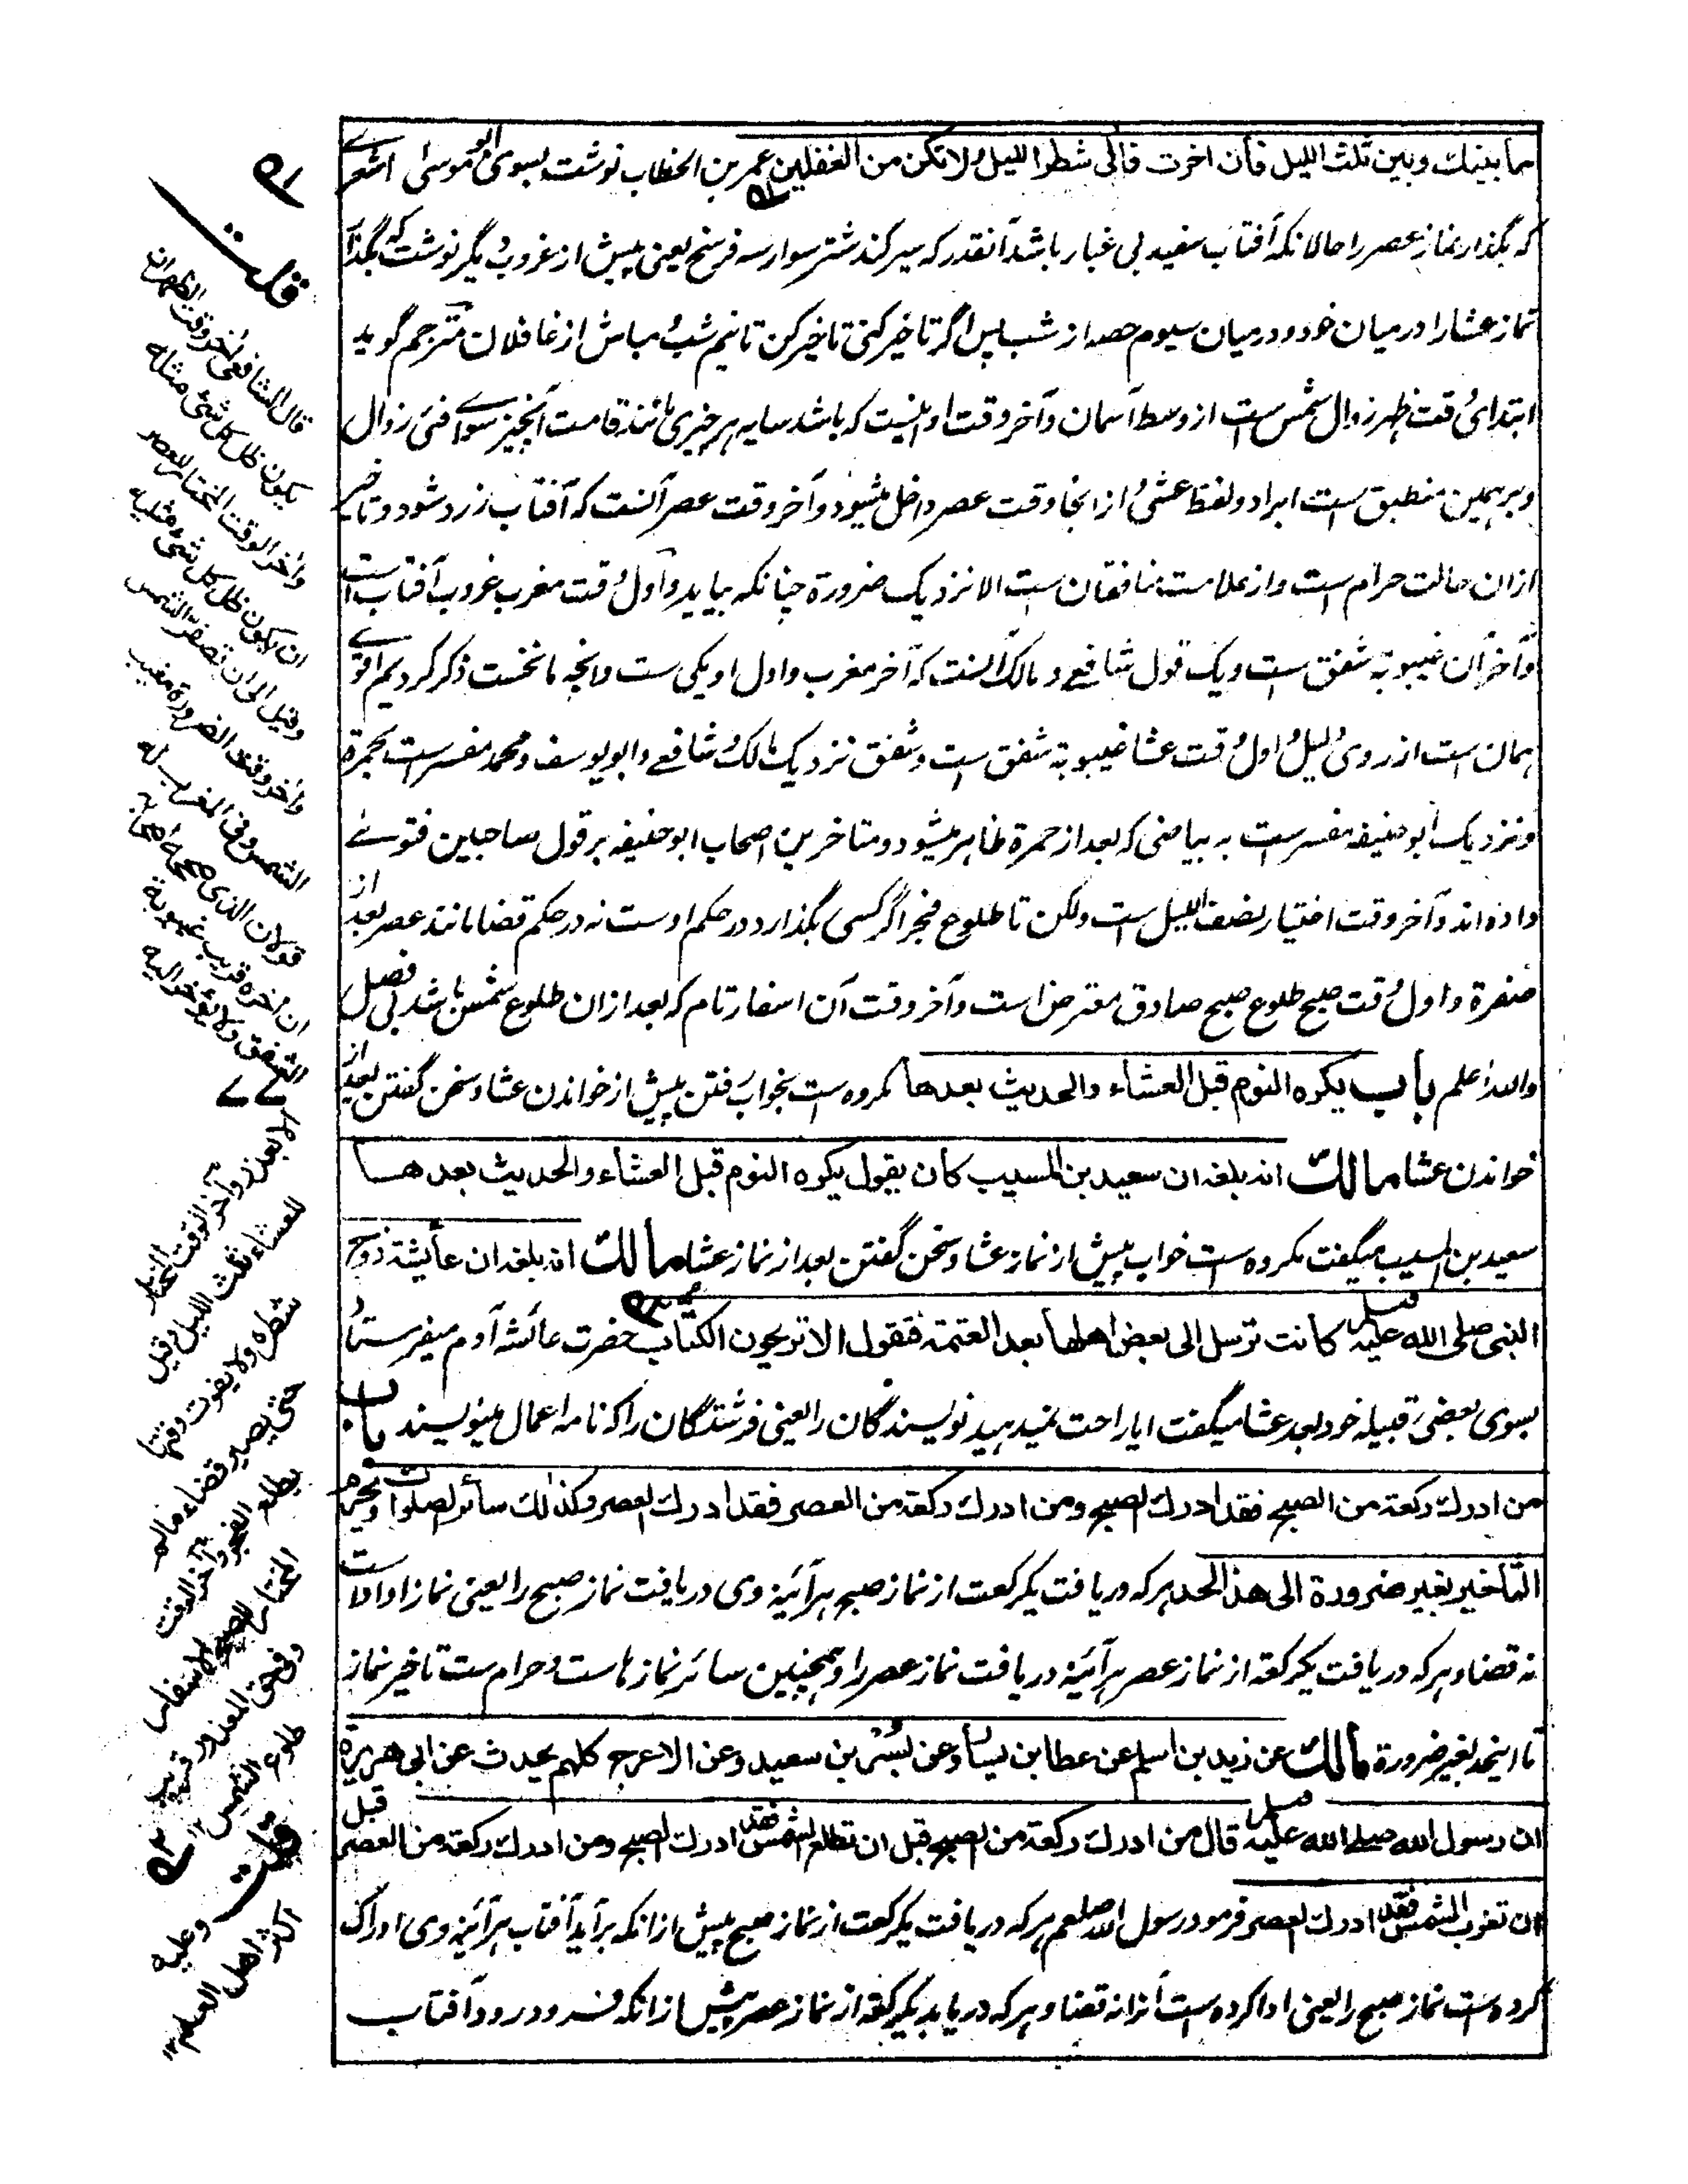 ما بينك وبين ثلث الليل فان اخرت فالى شطر الليل ولا تكن من الغفلين عمر بن الخطاب نوشت بسوی ابو موسی اشعری
که بگذار نماز عصر را حالانکه آفتاب سفید بی غبار باشد آنقدر که سیر کند شتر سوار سه فرسخ یعنی پیش از غروب و دیگر نوشت که بگذار
نماز عشا را درمیان خود و درمیان سیوم حصه از شب پس اگر تاخیر کنی تاخیر کن تا نیم شب و مباش از غافلان مترجم گوید
ابتدای وقت ظهر زوال شمس است از وسط آسمان وآخر وقت او اینست که باشد سایه هر چیزی مانند قامت آنچیز سوای فئ زوال
وبر همین منطبق است ابراد ولفظ عشی و از انجا وقت عصر داخل میشود وآخر وقت عصر آنست که آفتاب زرد شود وتاخیر
ازان حالت حرام است واز علامت منافقان است الا نزدیک ضرورة چنانکه بیاید واول وقت مغرب غروب آفتاب است
وآخر آن غیبوبة شفق است ویک قول شافعی ومالک آنست که آخر مغرب واول او یکی ست وانچه ما نخست ذکر کردیم اقوی
همان است از روی دلیل واول وقت عشا غیبوبة شفق است وشفق نزدیک مالک وشافعی وابو یوسف ومحمد مفسر است بحمرة
ونزدیک ابو حنیفه مفسر است به بیاضی که بعد از حمرة ظاهر میشود ومتاخرین اصحاب ابو حنیفه بر قول صاحبین فتوی
داده اند وآخر وقت اختیار نصف اللیل است ولکن تا طلوع فجر اگر کسی بگذارد در حکم اوست نه در حکم قضا مانند عصر بعد از
صفرة واول وقت صبح طلوع صبح صادق معترض است وآخر وقت آن اسفار تام که بعد ازان طلوع شمس باشد بی فصل
والله اعلم باب يكره النوم قبل العشاء والحديث بعدها مکروه ست بخواب رفتن پیش از خواندن عشا وسخن گفتن بعد از
خواندن عشا مالك انه بلغه ان سعيد بن المسيب كان يقول يكره النوم قبل العشاء والحديث بعدها
سعید بن المسیب میگفت مکروه است خواب پیش از نماز عشا وسخن گفتن بعد از نماز عشا مالك انه بلغه ان عائشة زوج
النبى صلى الله عليه وسلم كانت ترسل الى بعض اهلها بعد العتمة فتقول الا تريحون الكتّاب حضرت عائشه آدم میفرستاد
بسوی بعضی قبیله خود بعد عشا میگفت ایا راحت نمیدهید نویسندگان را یعنی فرشتگان را که نامه اعمال مینویسند باب
من ادرك ركعة من الصبح فقد ادرك الصبح ومن ادرك ركعة من العصر فقد ادرك العصر وكذالك سائر الصلوات ويحرم
التاخير بغير ضرورة الى هذا الحد هر که دریافت یکرکعت از نماز صبح هرآئینه وی دریافت نماز صبح را یعنی نماز او اداست
نه قضا وهر که دریافت یکرکعة از نماز عصر هرآئینه دریافت نماز عصر را وهمچنین سائر نمازهاست وحرام ست تاخیر نماز
تا اینحد بغیر ضرورة مالك عن زيد بن اسلم عن عطا بن يسار وعن بُسْر بن سعيد وعن الاعرج كلهم يحدث عن ابى هريرة
ان رسول الله صلى الله عليه وسلم قال من ادرك ركعة من الصبح قبل ان تطلع الشمس فقد ادرك الصبح ومن ادرك ركعة من العصر قبل
ان تغرب الشمس فقد ادرك العصر فرمود رسول الله صلعم هر که دریافت یکرکعت از نماز صبح پیش ازانکه برآید آفتاب هرآئینه وی ادراک
کرده ست نماز صبح را یعنی ادا کرده ست آنرا نه قضا وهر که دریابد یکرکعة از نماز عصر پیش ازانکه فرو رود آفتاب
قلت
قال الشافعى اخر وقت الظهر ان
يكون ظل كل شئ مثله
واخر الوقت المختار للعصر
ان يكون ظل كل شئ مثليه
وقيل الى ان تصفر الشمس
واخر وقت الضرورة مغيب
الشمس وفى المغرب له
قولان الذى صححه اصحابه
ان اخره قريب غيبوبة
الشفق ولا يؤخر اليه
الا بعذر وآخر الوقت المختار
للعشاء ثلث الليل وقيل
شطره ولا يفوت وقتها
حتى يصير قضاء مالم
يطلع الفجر وآخر الوقت
المختار للصبح الاسفار
وفى حق المعذور قريب
طلوع الشمس
قلت وعليه
اكثر اهل العلم